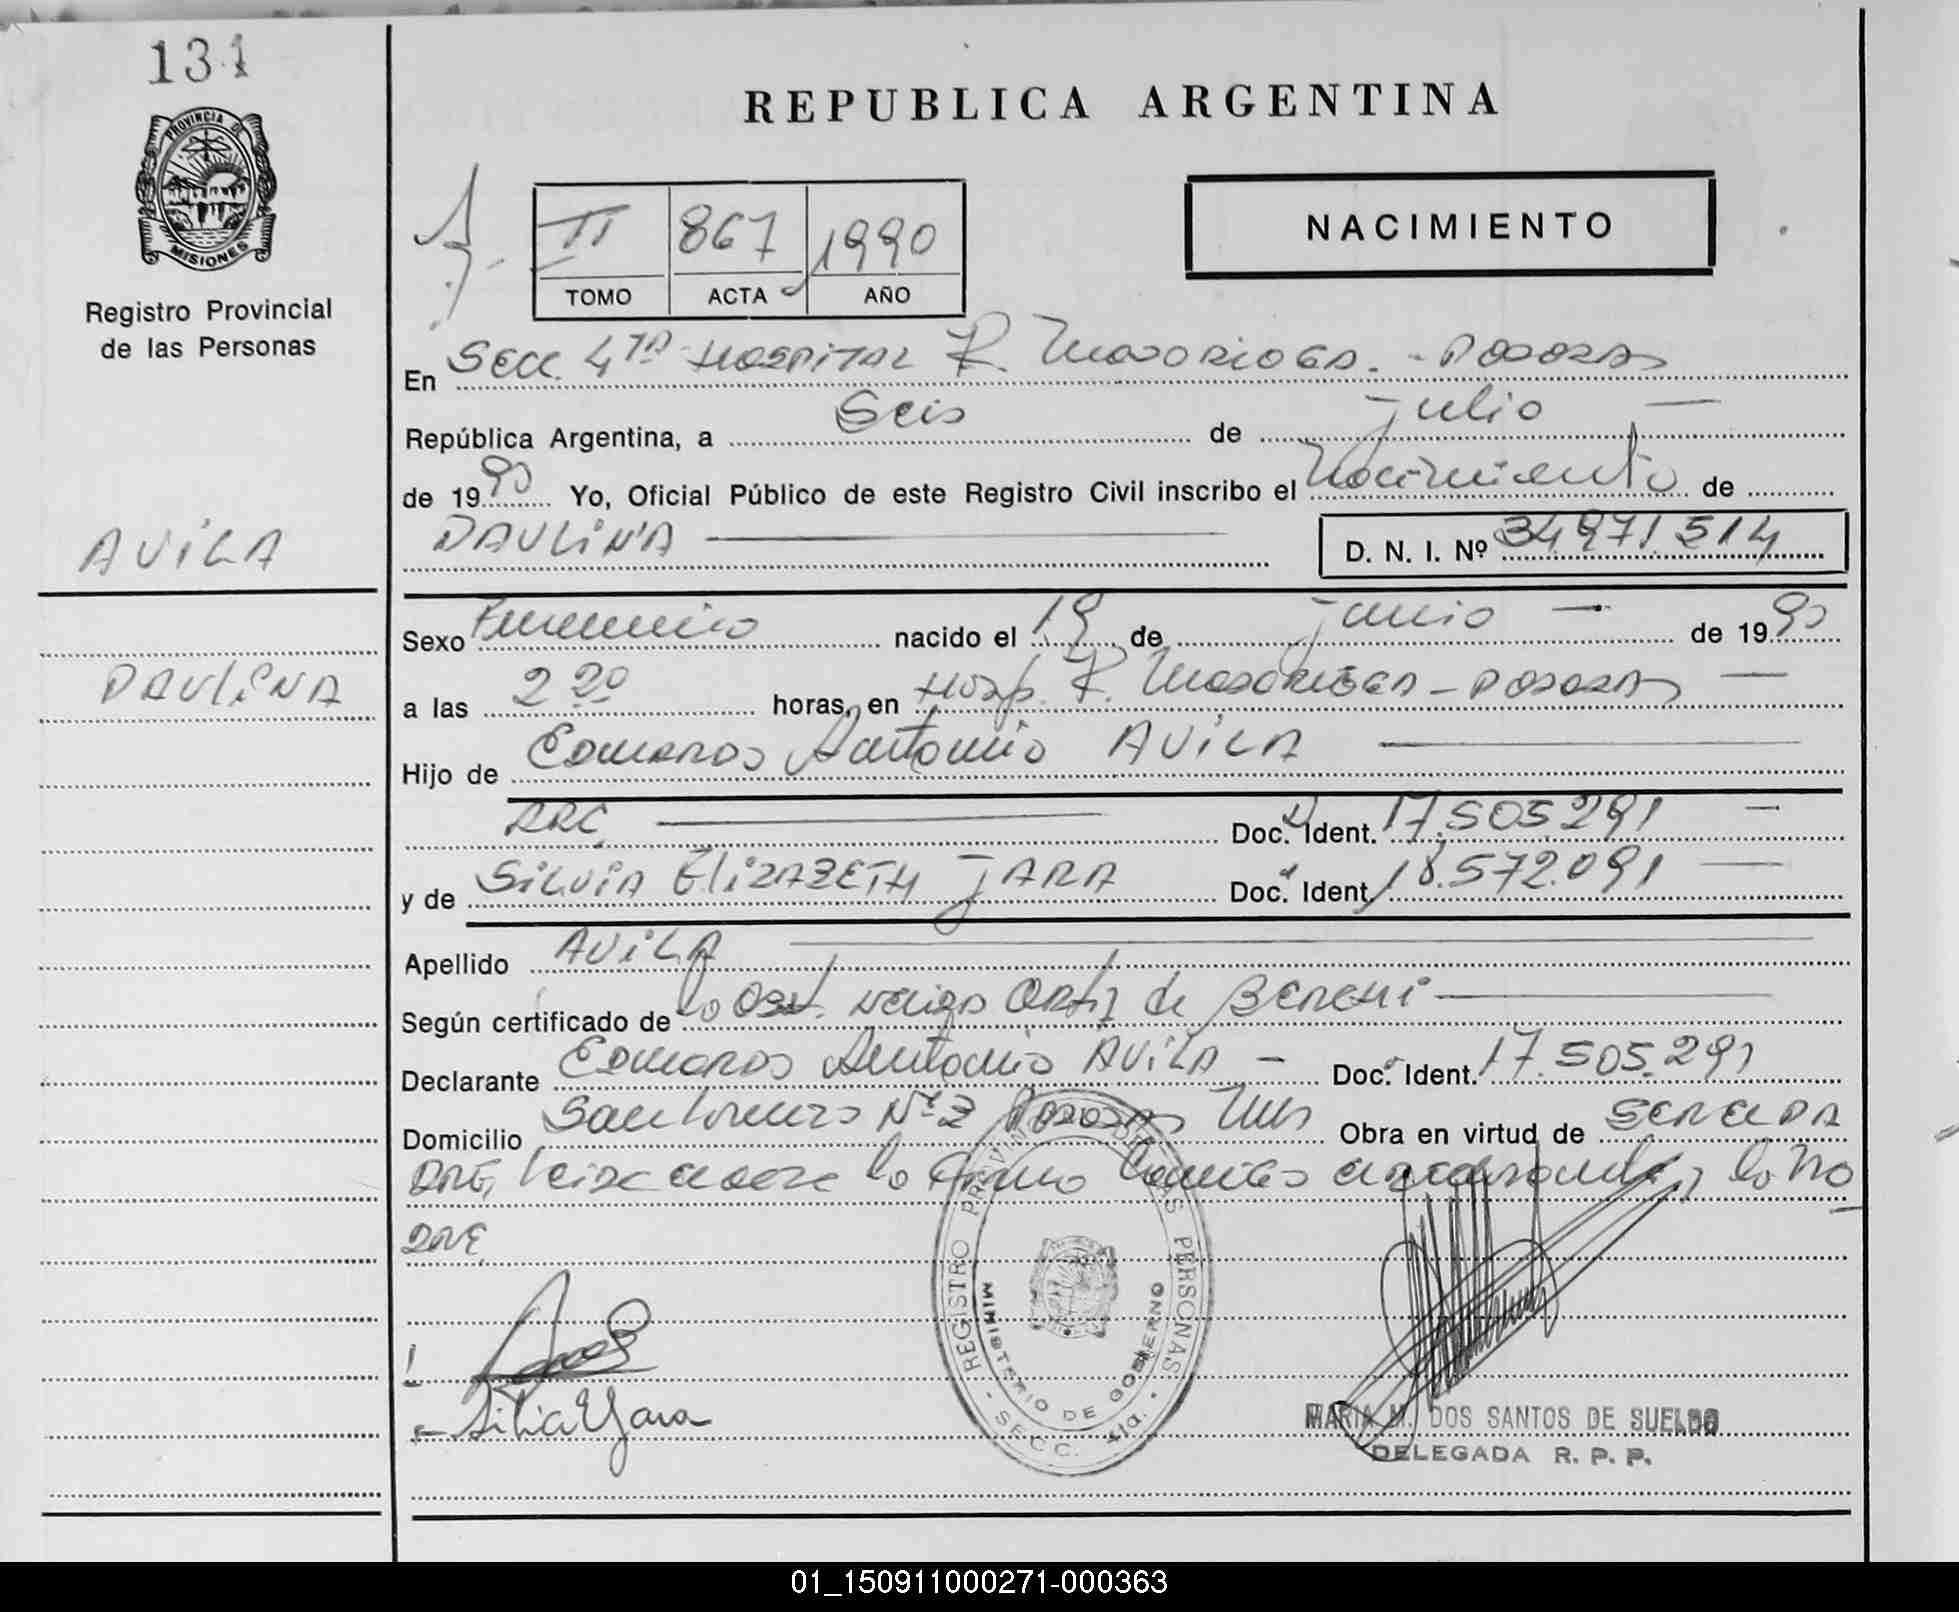 131
PROVINCIA DE
MISIONES
Registro Provincial
de las Personas
REPUBLICA ARGENTINA
II 867 1990
TOMO ACTA AÑO
NACIMIENTO
En Secc. 4TA Hospital R. Madariaga. - Posadas
República Argentina, a Seis de julio
de 1990 Yo, Oficial Público de este Registro Civil inscribo el Nacimiento de
PAULINA D. N. I. Nº 34971514
AVILA
Sexo Femenino nacido el 19 de junio de 1990
PAULINA
a las 2 20 horas, en Hosp. R. Madariaga - Posadas
Hijo de Eduardo Antonio AVILA
ARG. Doc. Ident. 17.505.291
y de SILVIA ELIZABETH JARA Doc. Ident. 18.572.091
Apellido AVILA
Según certificado de la Obst. Ortiz de
Declarante Eduardo Antonio AVILA - Doc. Ident. 17.505.291
Domicilio San Lorenzo Nº 2 Posadas Mns Obra en virtud de SER EL PA
DRE, leida el acta la firma conmigo el declarante y la MA
DRE
Silvia E Jara
REGISTRO PROVINCIAL DE LAS PERSONAS
MINISTERIO DE GOBIERNO
- SECC. 4ta. -
MARIA M. DOS SANTOS DE SUELDO
DELEGADA R. P. P.
01_150911000271-000363